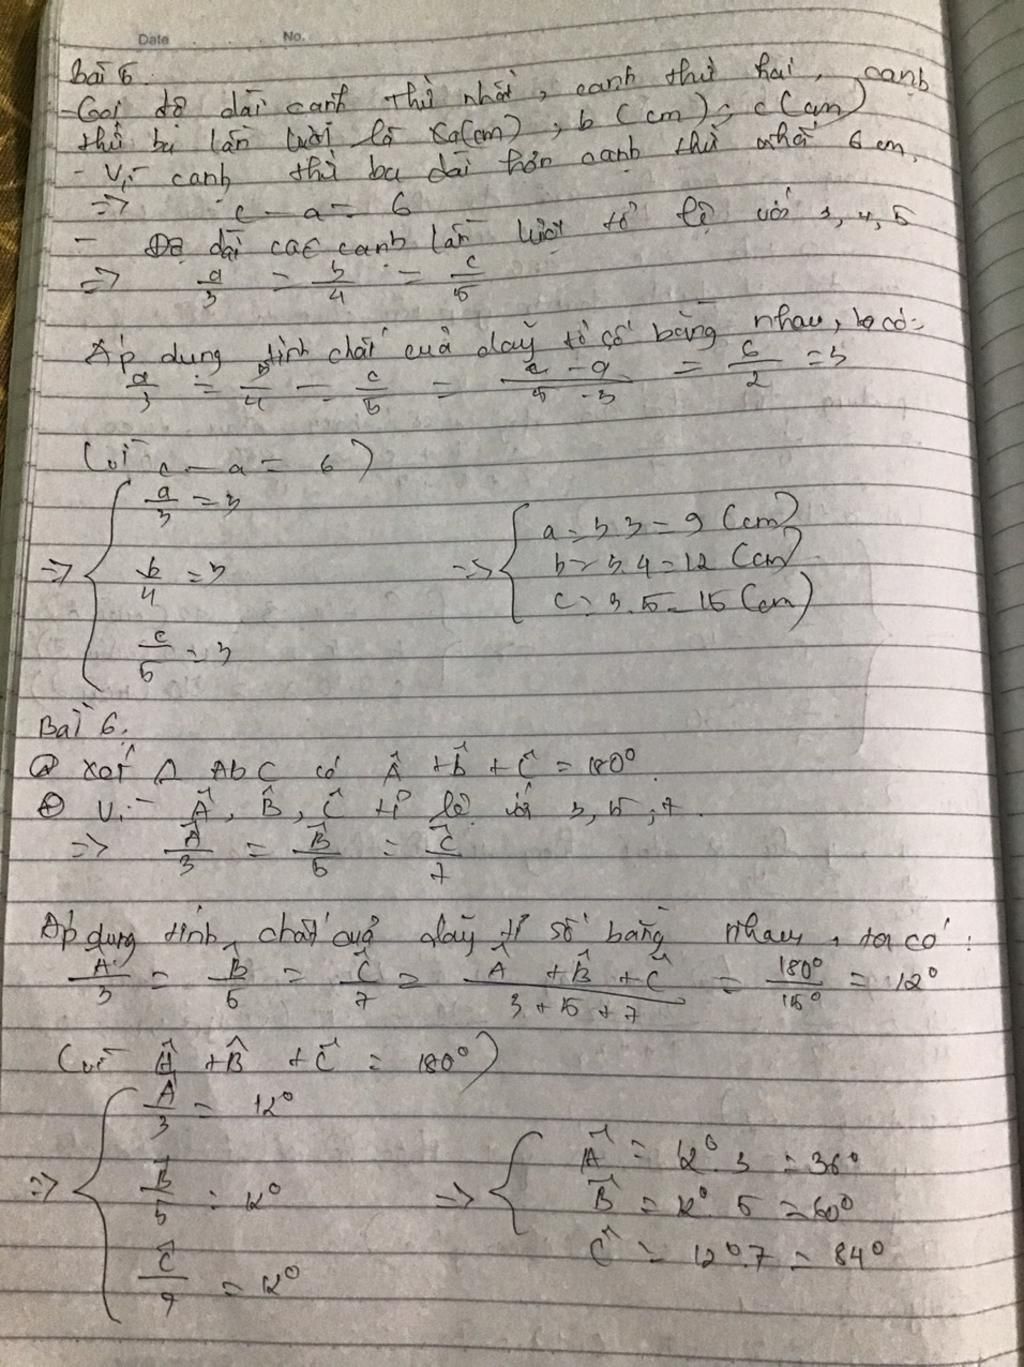 Date No.
Bài 5
- Gọi độ dài cạnh thứ nhất, cạnh thứ hai, cạnh
thứ ba lần lượt là a(cm), b(cm), c(cm)
- Vì cạnh thứ ba dài hơn cạnh thứ nhất 6 cm,
=> c - a = 6
- Độ dài các cạnh lần lượt tỉ lệ với 3, 4, 5
=> a/3 = b/4 = c/5
Áp dụng tính chất của dãy tỉ số bằng nhau, ta có:
a/3 = b/4 = c/5 = c - a/5 - 3 = 6/2 = 3
(vì c - a = 6)
a/3 = 3
=> b/4 = 3
c/5 = 3
=> a = 3.3 = 9 (cm)
b = 3.4 = 12 (cm)
c = 3.5 = 15 (cm)
Bài 6.
+ Xét Δ AbC có Â + b̂ + Ĉ = 180°.
+ Vì Â, B̂, Ĉ tỉ lệ với 3, 5, 7.
=> Â/3 = B̂/5 = Ĉ/7
Áp dụng tính chất của dãy tỉ số bằng nhau, ta có:
Â/3 = B̂/5 = Ĉ/7 = Â + B̂ + Ĉ/3 + 5 + 7 = 180°/15° = 12°
(vì Â + B̂ + Ĉ = 180°)
Â/3 = 12°
=> B̂/5 = 12°
Ĉ/7 = 12°
=> Â = 12°.3 = 36°
B̂ = 12°.5 = 60°
Ĉ = 12°.7 = 84°